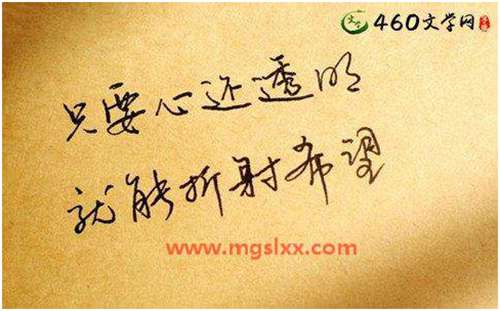 460文学网
只要心还透明
就能折射希望
www.mgslxx.com